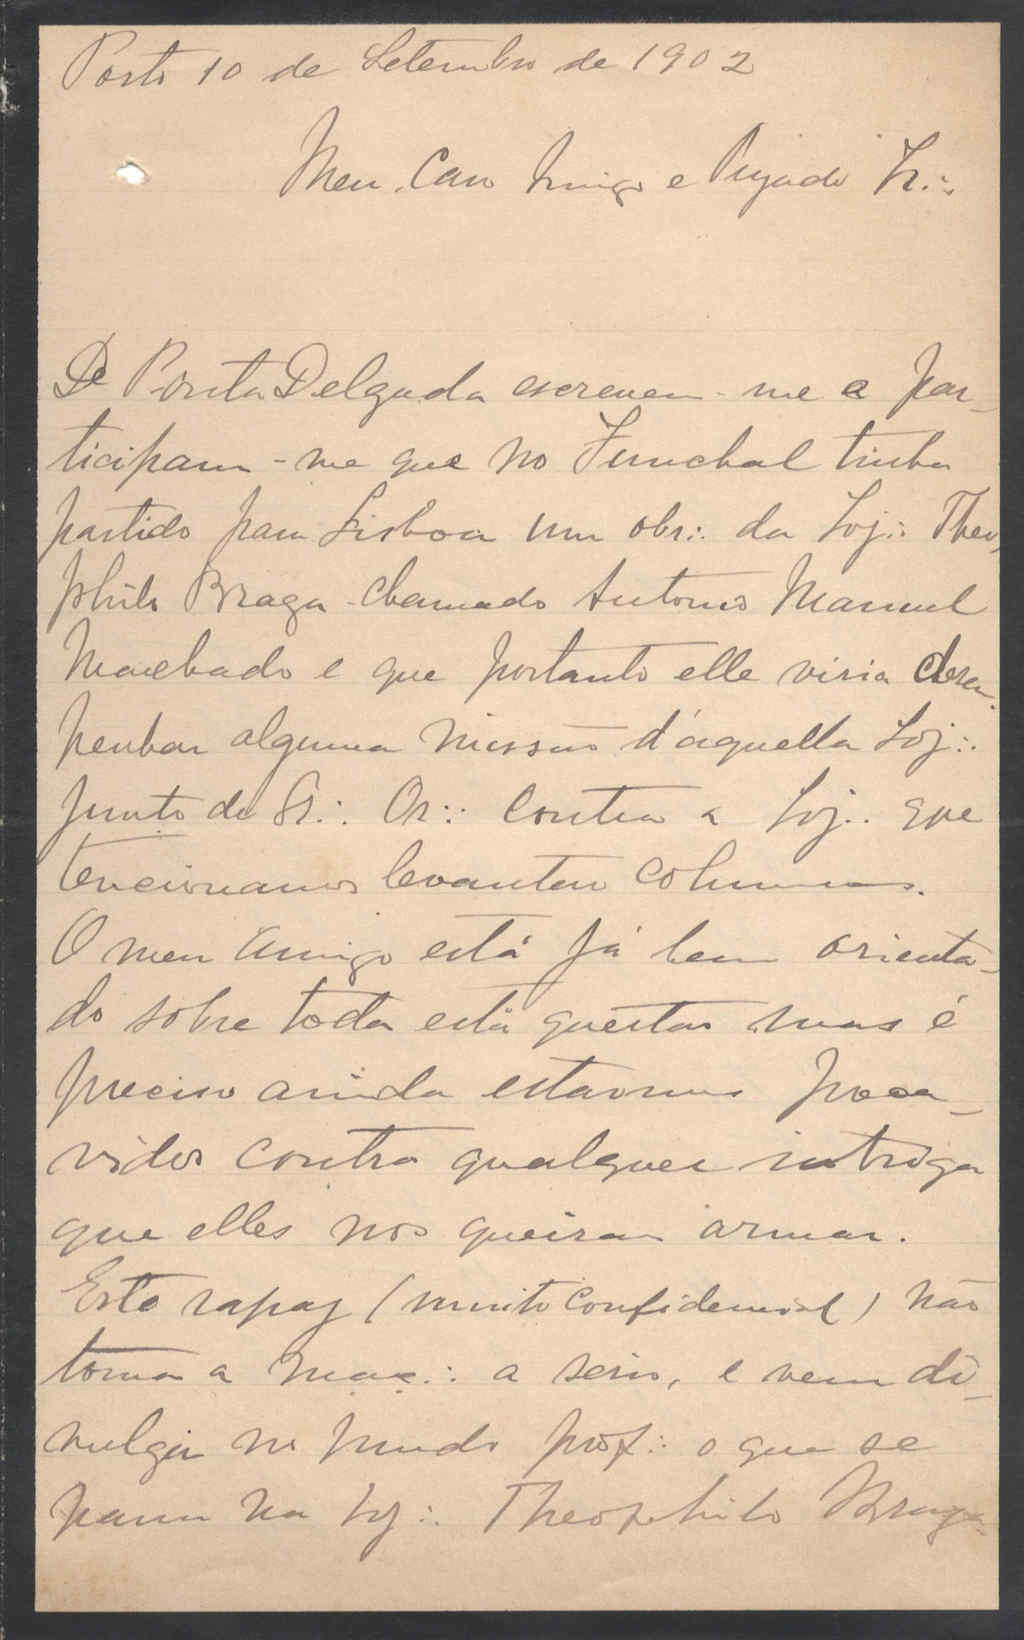 Porto 10 de Setembro de 1902
Meu Caro Amigo e Prezado Ir∴
De Ponta Delgada escrevem-me a par-
ticipam-me que no Funchal tinha
partido para Lisboa um obr∴ da Loj∴ Theo-
philo Braga chamado Antonio Manuel
Machado e que portanto elle viria desem-
penhar alguma missão d'aquella Loj∴
junto do Gr∴ Or∴ contra a Loj∴ que
tencionamos levantar columnas.
O meu amigo está já bem orienta-
do sobre toda está questão mas é
preciso ainda estarmos preca-
vidos contra qualquer intriga
que elles nos queiram armar.
Este rapaz (muito confidencial) não
toma a maç∴ a serio, e vem di-
vulgar no mundo prof∴ o que se
passa na Loj∴ Theophilo Braga